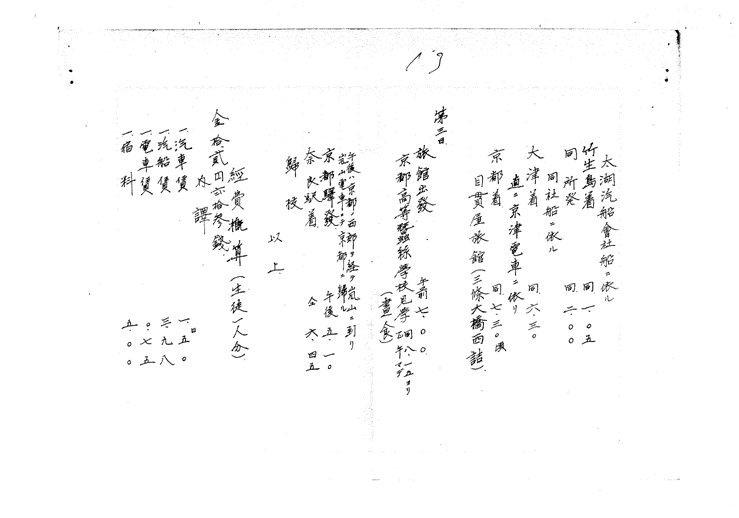 太湖汽船會社船ニ依ル
竹生島着 同 一.〇五
同所発 同 二.〇〇
同社船ニ依ル
大津着 同 六.三〇
直ニ京津電車ニ依リ
京都着 同 七.三〇頃
目貫屋旅館(三條大橋西詰)
第三日
旅館出發 午前 七.〇〇
京都高等蠶絲學校見學 同 八.一五ヨリ正午マデ
(晝食)
午後ハ京都ノ西部ヲ経テ嵐山ニ到リ
嵐山電車ニテ京都ニ帰ル
京都驛發 午後 五.一〇
奈良駅着 仝 六.四五
歸校
以上
經費概算(生徒一人分)
金拾貳円弐拾参錢
内譯
一汽車賃 一.五〇
一汽船賃 三.九八
一電車賃 〇.七五
一宿料 五.〇〇